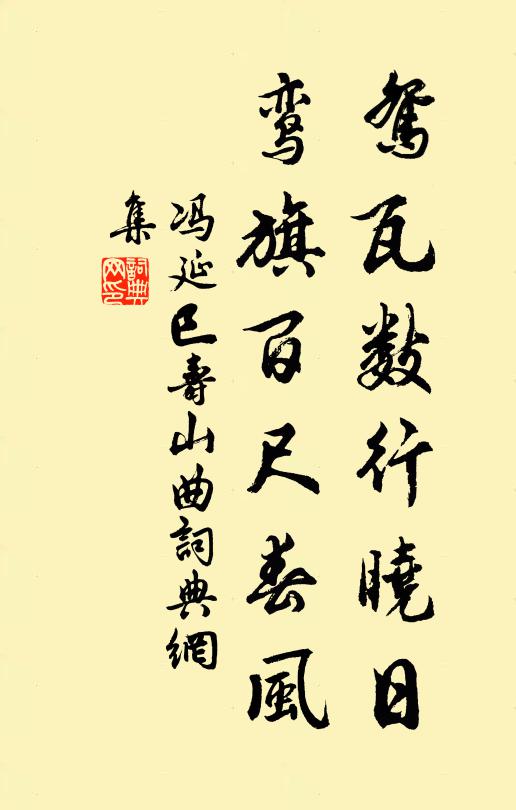 鸳瓦数行曉日
鸾旗百尺春風
冯延巳壽山曲詞典網
集
詞典
网印